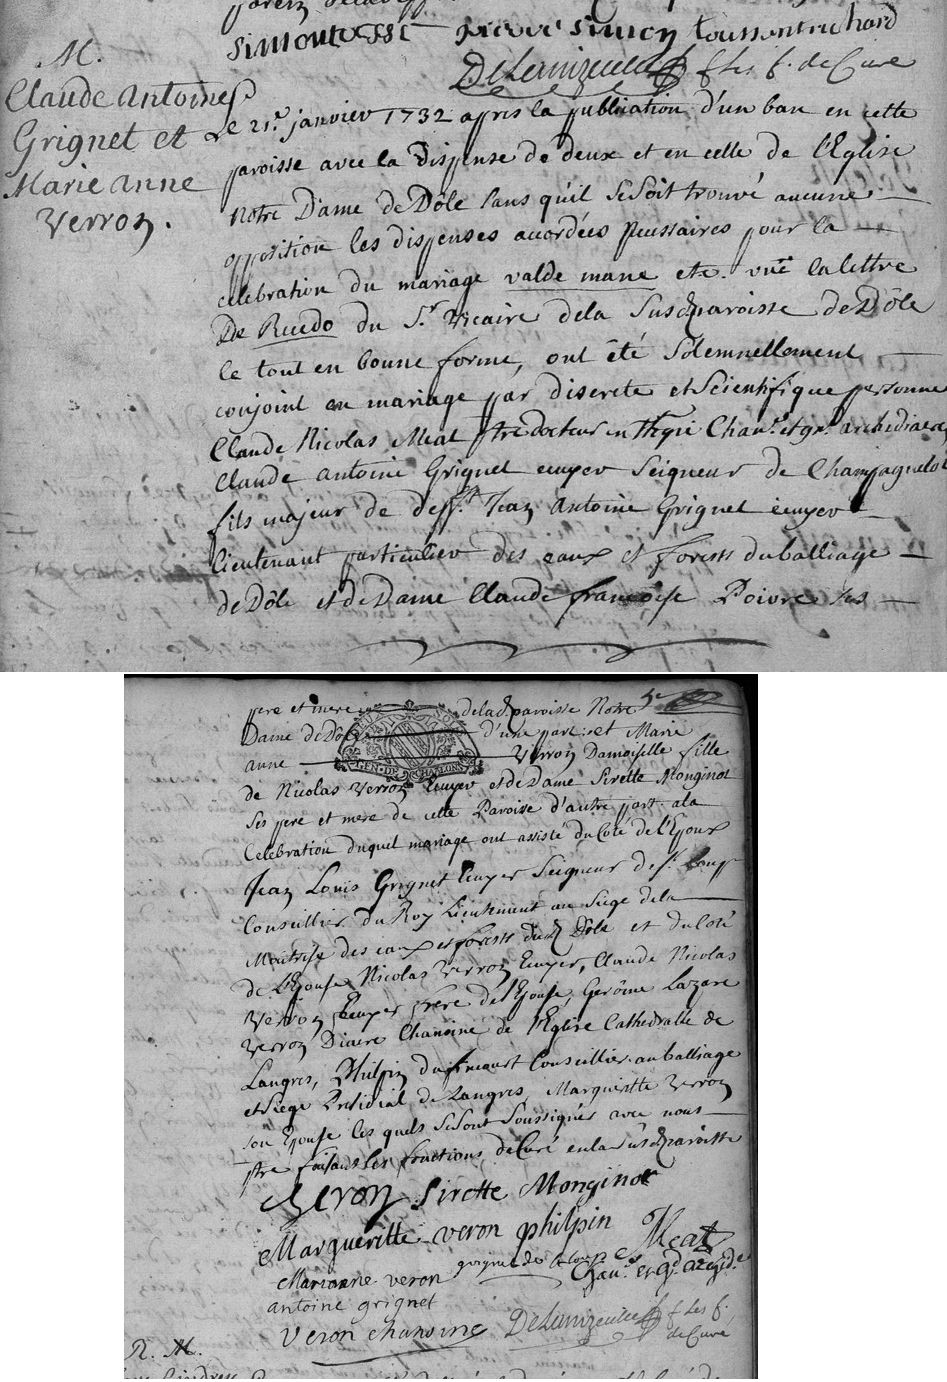 Simonte pierre Simon toussentruchard
Delamizeulle f. les f. de Curé
M.
Claude Antoine
Grignet et
Marie anne
Verron.
Le 21e. janvier 1732 apres la publication d'un ban en cette
paroisse avec la dispense de deux et en celle de l'Eglise
Notre Dame de Dôle sans qu'il se soit trouvé aucune
opposition les dispenses accordées necessaires pour la
celebration du mariage valde mane etc. vüe la lettre
De Recedo du Sr. Vicaire de la Susd. paroisse de Dôle
le tout en bonne forme, ont été Solemnellement
conjoint en mariage par discrete et Scientifique personne
Claude Nicolas Meat ptre docteur en Thgie Chan. et gr. archidiacre
Claude antoine Grignet ecuyer Seigneur de Champagnolot
fils majeur de deff. Jean Antoine Grignet ecuyer
lieutenant particulier des eaux et forests du balliage
de Dôle et de Dame Claude françoise Poivre ses
pere et mere de la d. paroisse Notre
Dame de Dôle d'une part: et Marie
anne Verron Damoiselle fille
GEN. DE CHALONS
de Nicolas Verron Ecuyer et de Dame Sirette Monginot
Ses pere et mere de cette Paroisse d'autre part. a la
Celebration duquel mariage ont assisté du Coté de l'Epoux
Jean Louis Grignet Ecuyer Seigneur de St. Loup
Conseillier du Roy Lieutenant au Siege de la
Maitrise des eaux et forests dud. Dôle et du Coté
de l'Epouse Nicolas Verron Ecuyer, Claude Nicolas
Verron Ecuyer frere de l'Epouse, Gerôme Lazare
Verron Diacre Chanoine de l'Eglise Cathedralle de
Langres, Philpin Conseillier au balliage
et Siege Presidial de Langres, Margueritte Verron
son Epouse les quels se sont Soussignés avec nous
ptre faisant les fonctions de Curé en la Susd. paroisse
Veron Sirette Monginot
Margueritte veron philpin Meat
Marianne veron grignet de st loup Chan. et gd. archid.
antoine grignet
Veron chanoine Delamizeulle f. les f.
de Curé
R. M.